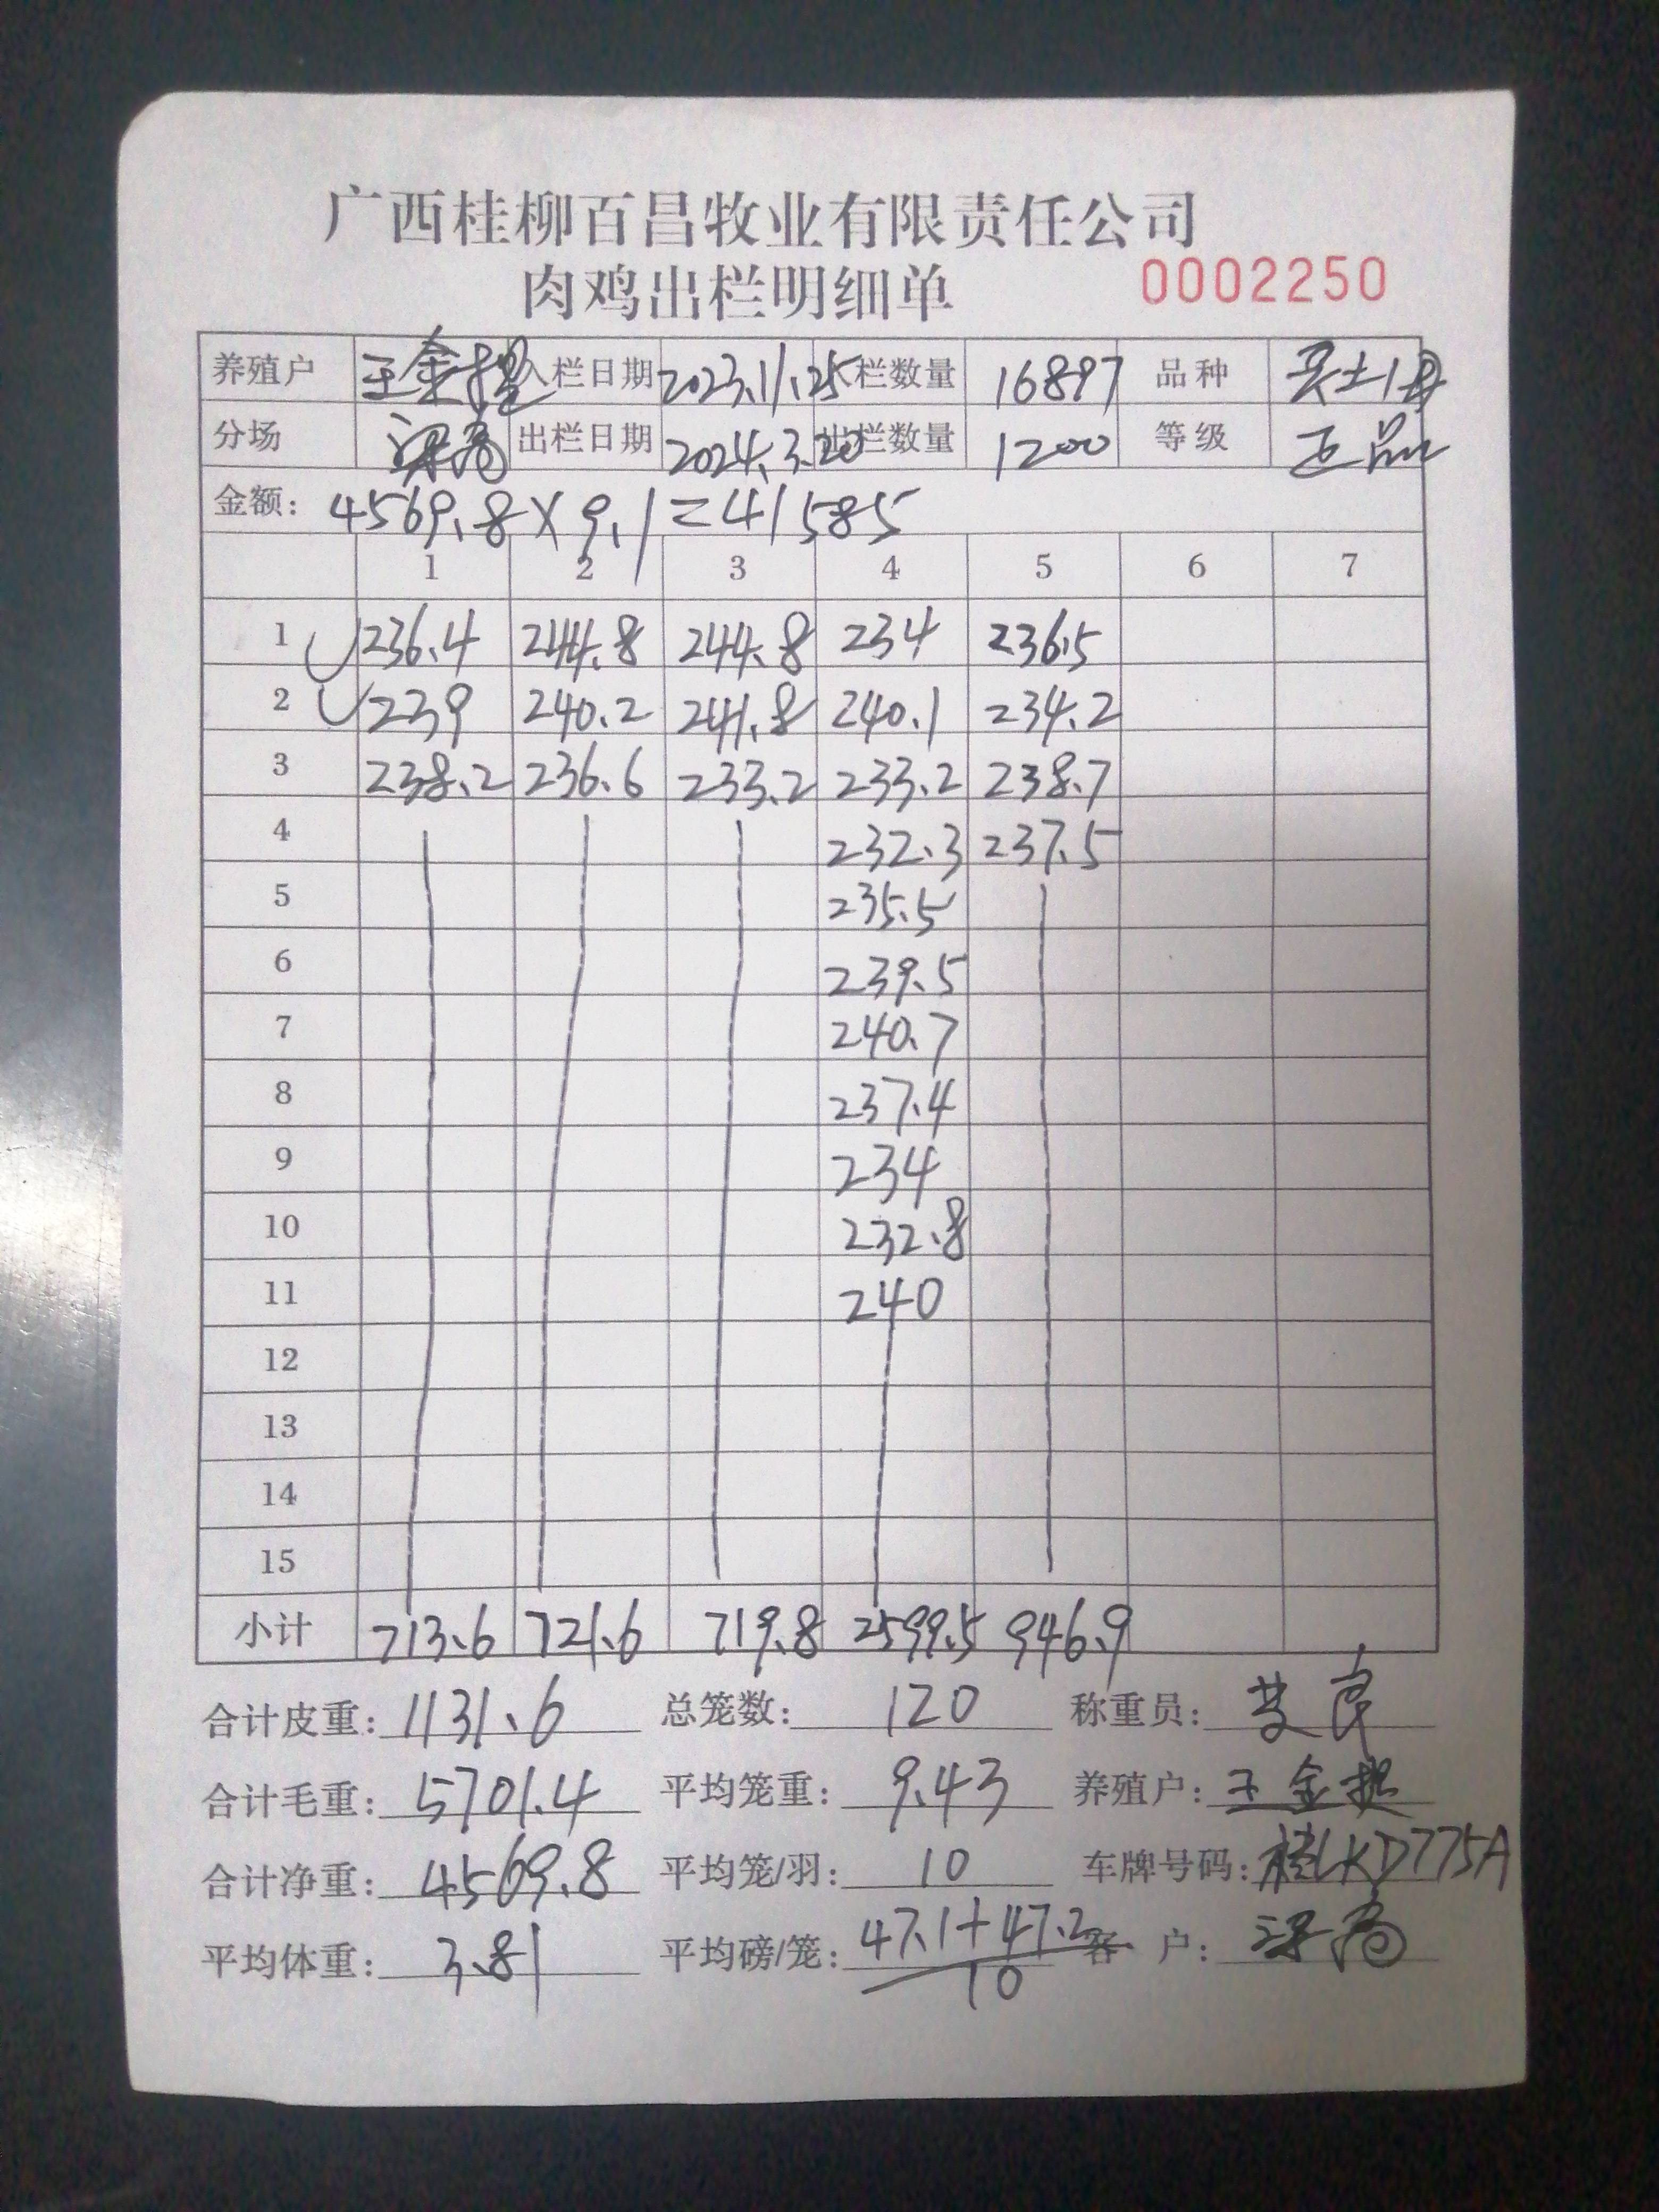 广西桂柳百昌牧业有限责任公司
肉鸡出栏明细单 0002250
养殖户 王金提 入栏日期 2023.11.25 栏数量 16897 品种
分场 出栏日期 2024.3.20 出栏数量 1200 等级 正品
金额: 4569.8×9.1=41585
1 2 3 4 5 6 7
1 236.4 244.8 244.8 234 236.5
2 239 240.2 241.8 240.1 234.2
3 238.2 236.6 233.2 233.2 238.7
4 232.3 237.5
5 235.5
6 239.5
7 240.7
8 237.4
9 234
10 232.8
11 240
12
13
14
15
小计 713.6 721.6 719.8 2599.5 946.9
合计皮重: 1131.6 总笼数: 120 称重员:
合计毛重: 5701.4 平均笼重: 9.43 养殖户: 王金提
合计净重: 4569.8 平均笼/羽: 10 车牌号码: 桂LKD775A
平均体重: 3.81 平均磅/笼: 47.1+47.2 客 户:
10